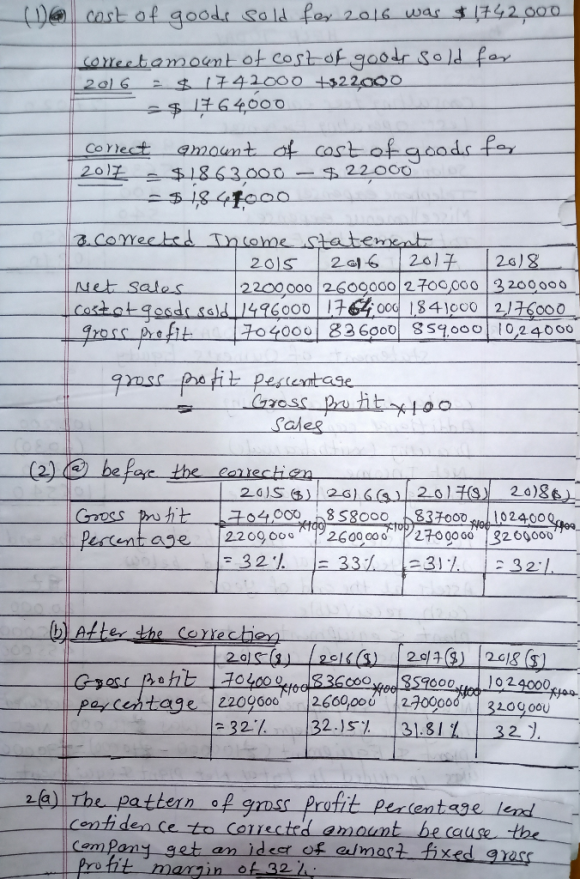 (1)@ cost of goods sold for 2016 was $ 1,742,000
correct amount of cost of goods sold for
2016 = $ 1742000 + $22,000
= $ 1,764,000
correct amount of cost of goods for
2017 = $ 1863000 - $ 22000
= $ 1,841000
3. Corrected Income statement
2015 2016 2017 2018
Net sales 2200,000 2600000 2,700,000 3200000
cost of goods sold 1496000 1,764,000 1,841000 2,176000
gross profit 704000 836000 859.000 10,24000
gross profit percentage
= Gross profit x 100
Sales
(2) (a) before the correction
2015($) 2016($) 2017($) 2018($)
Gross profit 704,000 x100 858000 x100 837000 x100 1024000 x100
Percentage 2200,000 2600000 2700000 3200000
= 32% = 33% = 31% = 32%
(b) After the correction
2015($) 2016($) 2017($) 2018($)
Gross Profit 704000 x100 836000 x100 859000 x100 1024000 x100
percentage 2200000 2600,000 2700000 3200000
= 32% 32.15% 31.81% 32%
2(a) The pattern of gross profit percentage lend
confidence to corrected amount because the
company get an idea of almost fixed gross
profit margin of 32%.